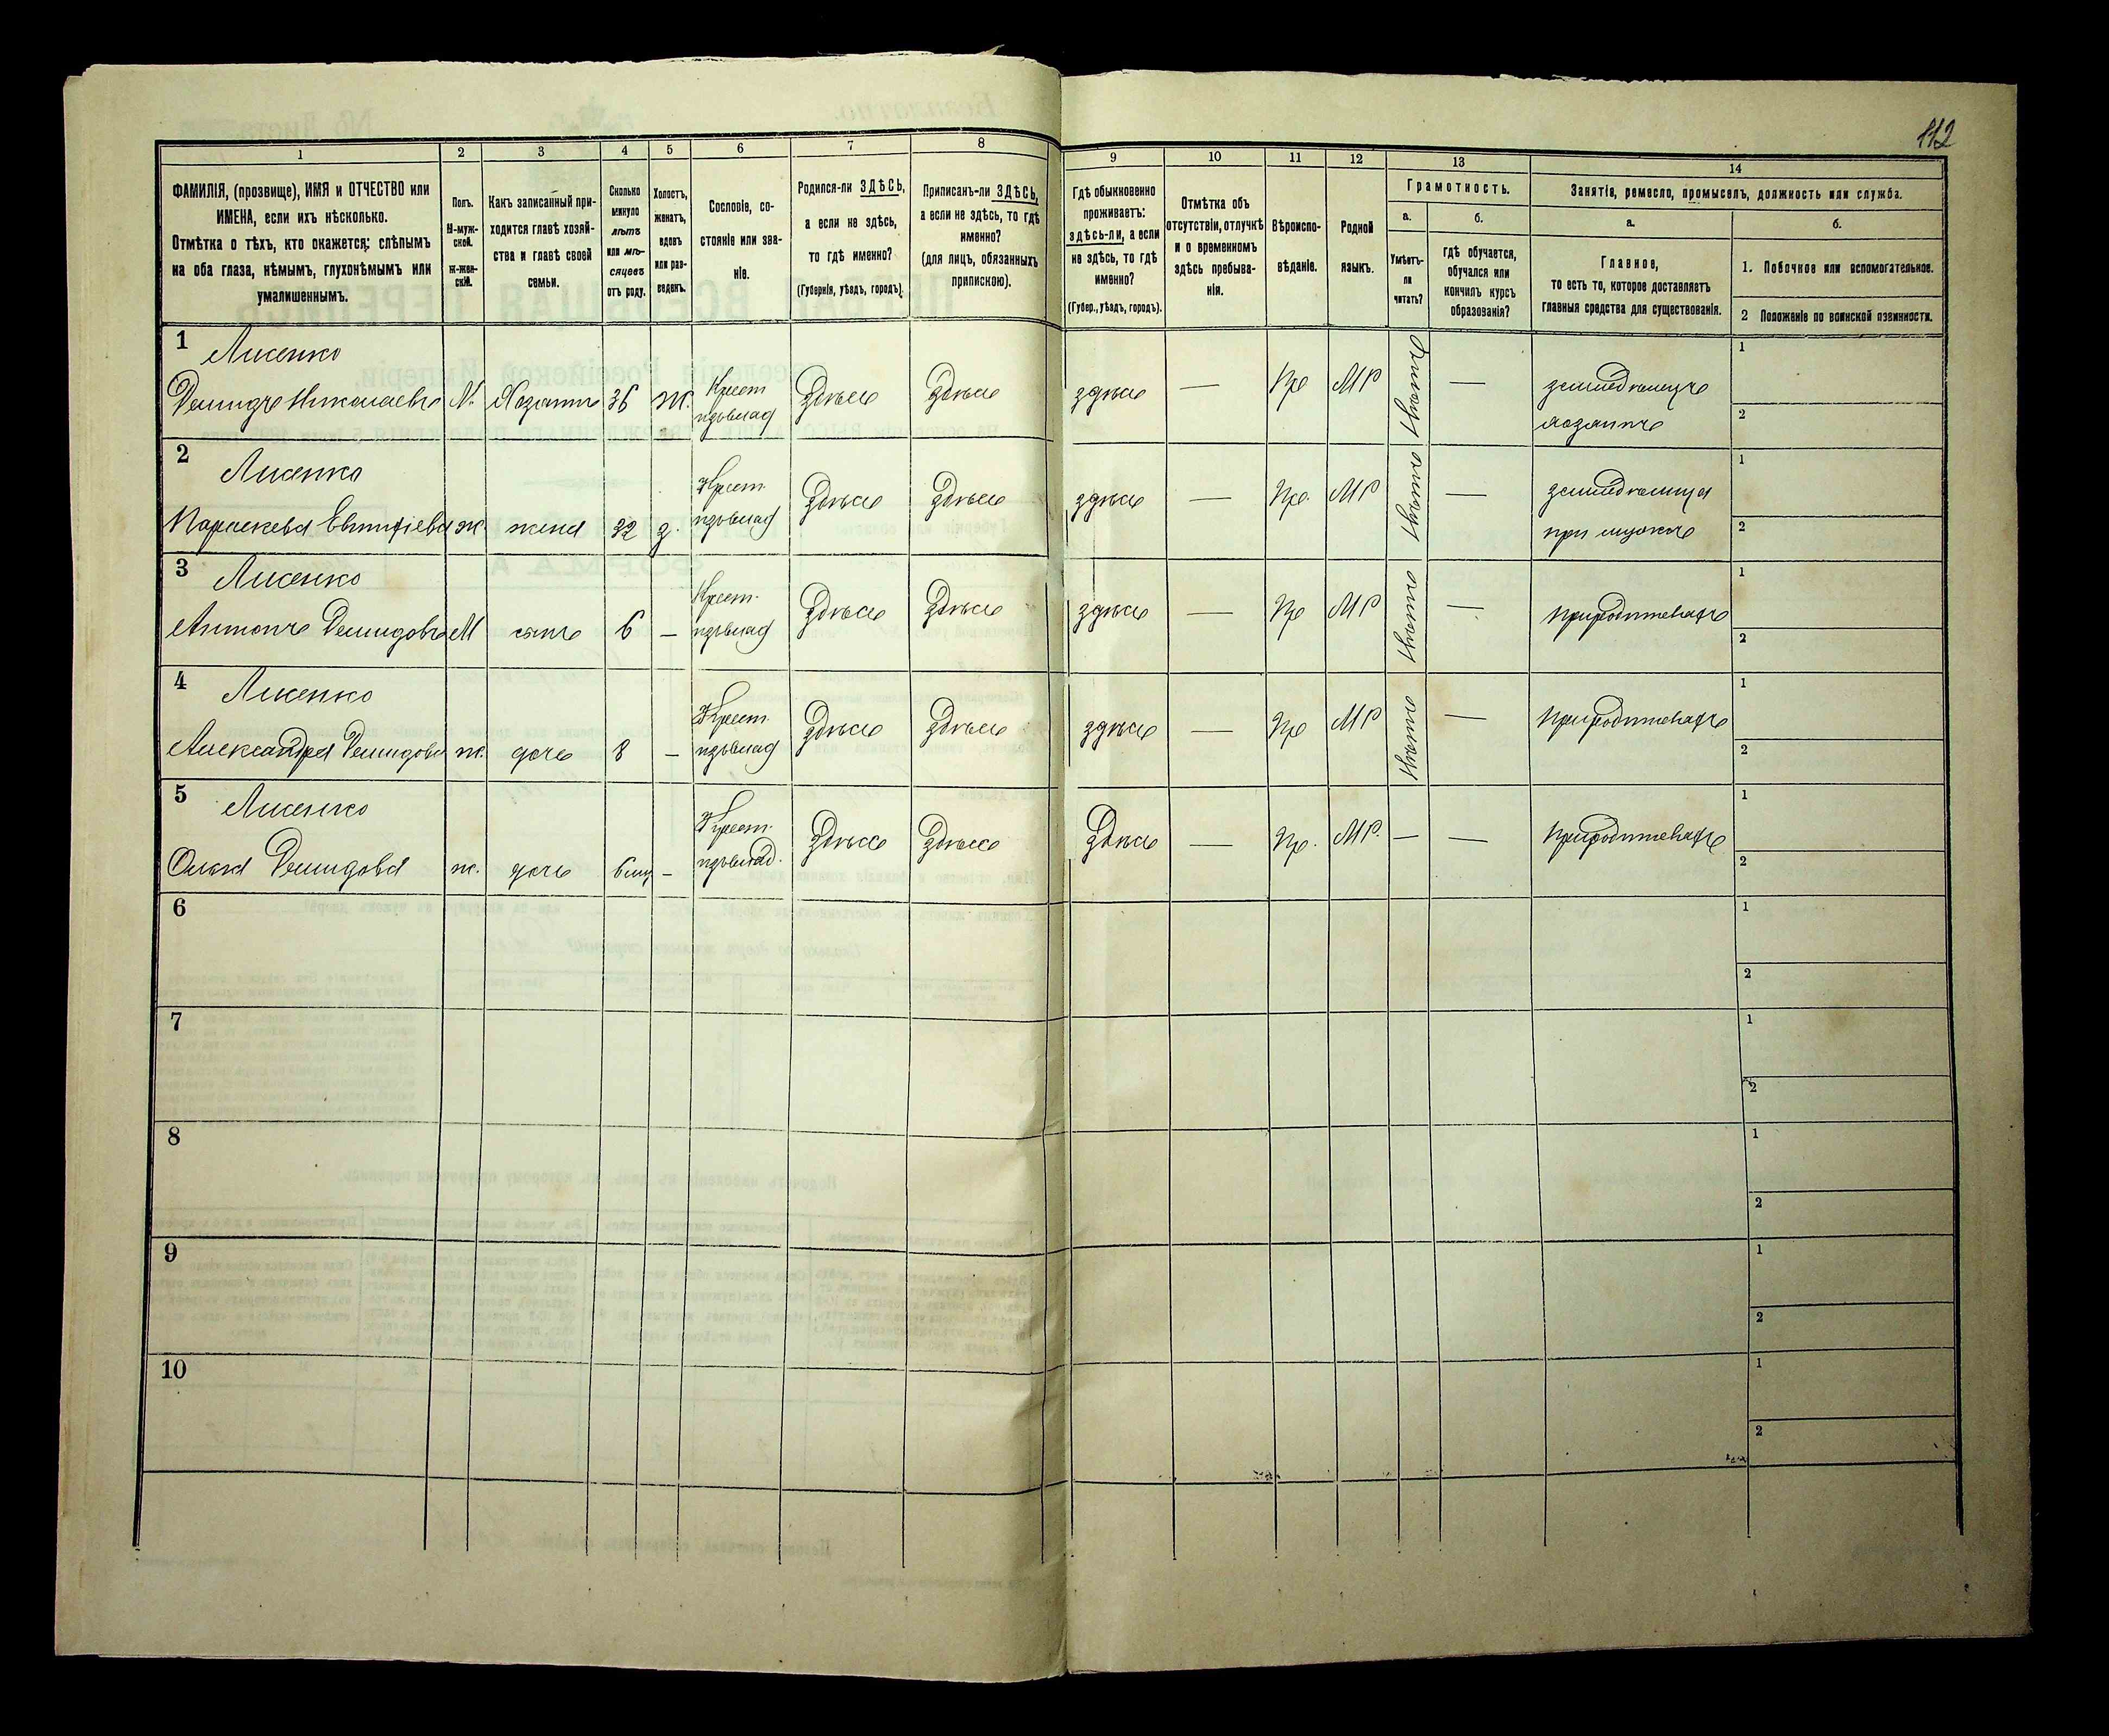 112
1 2 3 4 5 6 7 8 9 10 11 12 13 14
ФАМИЛІЯ, (прозвище), ИМЯ и ОТЧЕСТВО или
ИМЕНА, если ихъ нѣсколько.
Отмѣтка о тѣхъ, кто окажется: слѣпымъ
на оба глаза, нѣмымъ, глухонѣмымъ или
умалишеннымъ.
Полъ.
М-муж-
ской.
Ж-жен-
скій.
Какъ записанный при-
ходится главѣ хозяй-
ства и главѣ своей
семьи.
Сколько
минуло
лѣтъ
или мѣ-
сяцевъ
отъ роду.
Холостъ,
женатъ,
вдовъ
или раз-
веденъ.
Сословіе, со-
стояніе или зва-
ніе.
Родился-ли ЗДѢСЬ,
а если не здѣсь,
то гдѣ именно?
(Губернія, уѣздъ, городъ).
Приписанъ-ли ЗДѢСЬ,
а если не здѣсь, то гдѣ
именно?
(для лицъ, обязанныхъ
припискою).
Гдѣ обыкновенно
проживаетъ:
здѣсь-ли, а если
не здѣсь, то гдѣ
именно?
(Губер., уѣздъ, городъ).
Отмѣтка объ
отсутствіи, отлучкѣ
и о временномъ
здѣсь пребыва-
ніи.
Вѣроиспо-
вѣданіе.
Родной
языкъ.
Грамотность.
а.
Умѣетъ-
ли
читать?
б.
гдѣ обучается,
обучался или
кончилъ курсъ
образованія?
Занятіе, ремесло, промыселъ, должность или служба.
а.
Главное,
то есть то, которое доставляетъ
главныя средства для существованія.
б.
1. Побочное или вспомогательное.
2 Положеніе по воинской повинности.
1 Лисенко
Демидъ Николаевъ М. Хозяинъ 36 ж. Крест издѣвлад Здѣсь Здѣсь здѣсь — Пр МР — земледѣлецъ
хозяинъ
1
2
2 Лисенко
Параскева ж жена 32 з. Крест. издѣвлад Здѣсь Здѣсь здѣсь — Пр. МР нѣтъ — земледѣлица
при мужѣ
1
2
3 Лисенко
Антонъ Демидовъ М сынъ 6 — Крест. издѣвлад Здѣсь Здѣсь здѣсь — Пр МР нѣтъ — при родителяхъ
1
2
4 Лисенко
Александра Демидова ж. дочь 8 — Крест. издѣвлад Здѣсь Здѣсь здѣсь — Пр МР нѣтъ — при родителяхъ
1
2
5 Лисенко
Демидова ж. дочь 6 мц — Крест. издѣвлад. Здѣсь Здѣсь Здѣсь — Пр. МР. — — при родителяхъ
1
2
6
1
2
7
1
2
8
1
2
9
1
2
10
1
2